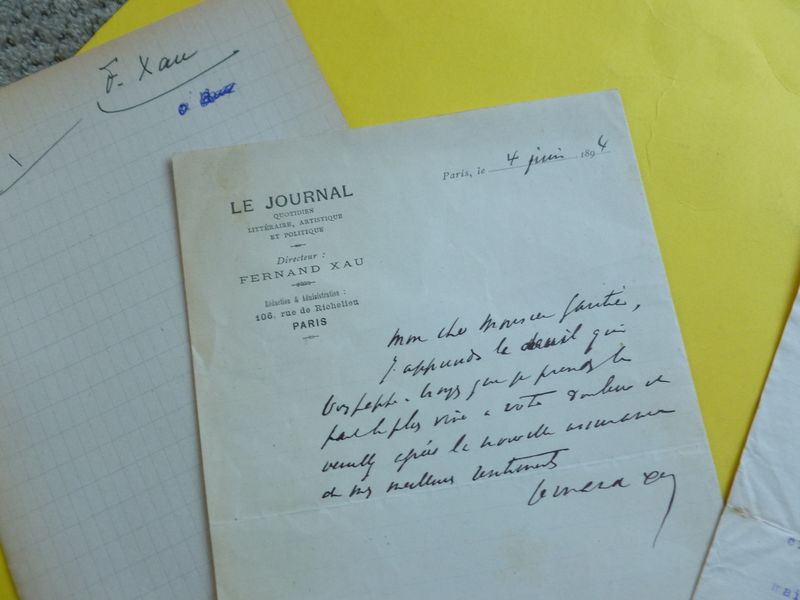 F. Xau
LE JOURNAL
QUOTIDIEN
LITTÉRAIRE, ARTISTIQUE
ET POLITIQUE
Directeur :
FERNAND XAU
Rédaction & Administration :
106, rue de Richelieu
PARIS
Paris, le 4 juin 1894
Mon cher Monsieur Gautier,
J'apprends le deuil qui
vous frappe. Croyez que je prends la
part la plus vive a votre douleur et
veuillez agréer la nouvelle assurance
de mes meilleurs sentiments
Fernand Xau